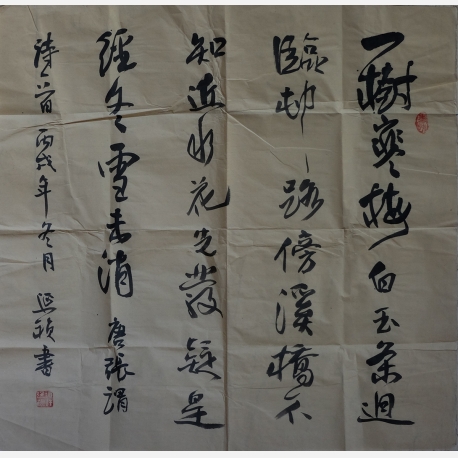 一樹寒梅白玉条迴
臨邨路傍溪橋不
知近水花先發疑是
經冬雪未消 唐張謂
詩一首 丙戌年冬月 延禎書